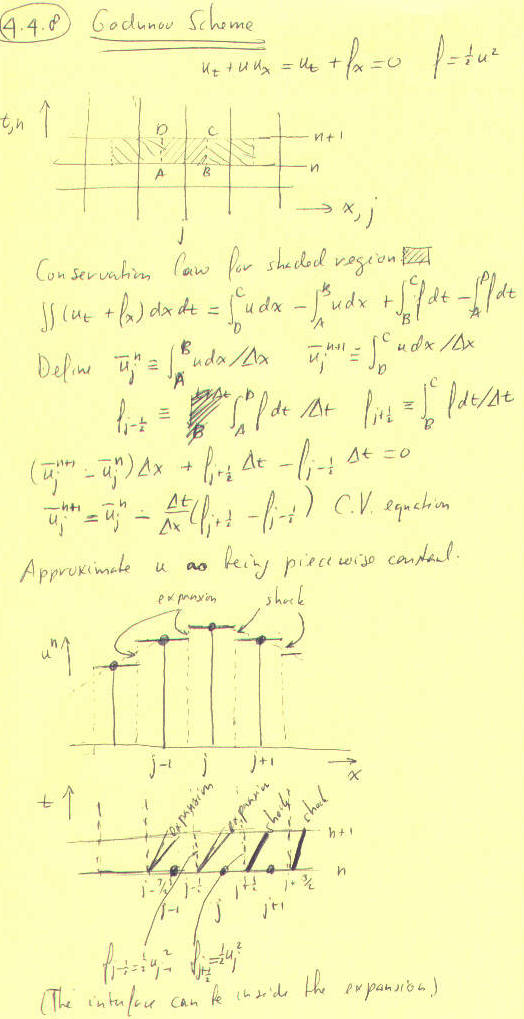 4.4.8 Godunov Scheme
u_t + u u_x = u_t + f_x = 0 f = ½ u²
t, n
D C
n+1
A B
n
x, j
j
Conservation law for shaded region
∬(u_t + f_x) dx dt = ∫_D^C u dx − ∫_A^B u dx + ∫_B^C f dt − ∫_A^D f dt
Define ū_j^n ≡ ∫_A^B u dx/Δx ū_j^{n+1} ≡ ∫_D^C u dx/Δx
f_{j-½} ≡ ∫_A^D f dt/Δt f_{j+½} ≡ ∫_B^C f dt/Δt
(ū_j^{n+1} − ū_j^n) Δx + f_{j+½} Δt − f_{j-½} Δt = 0
ū_j^{n+1} = ū_j^n − Δt/Δx (f_{j+½} − f_{j-½}) C.V. equation
Approximate u as being piecewise constant.
expansion shock
u^n
j-1 j j+1
x
t
expansion expansion shock shock
n+1
n
j-3/2 j-½ j+½ j+3/2
j-1 j j+1
f_{j-½} = ½ u_{j-1}² f_{j+½} = ½ u_j²
(The interface can be inside the expansion)